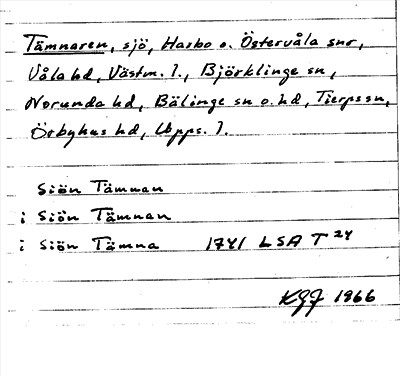 Tämnaren, sjö, Harbo o. Östervåla snr,
Våla hd, Västm. l., Björklinge sn,
Norunda hd, Bälinge sn o. hd, Tierps sn,
Örbyhus hd, Upps. l.
Siön Tämnan
i Siön Tämnan
i Siön Tämna 1741 LSA T 24
KGJ 1966